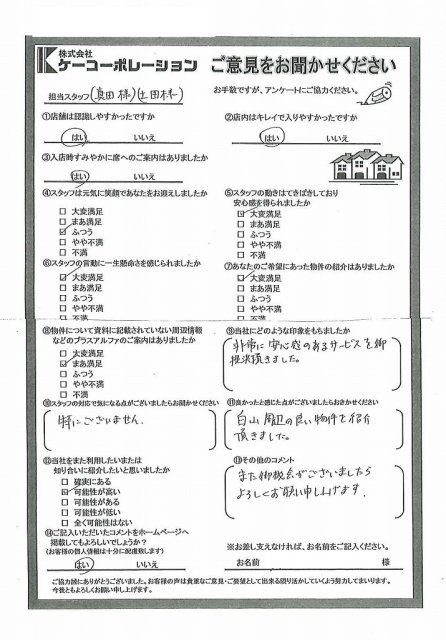 株式会社
ケーコーポレーション
ご意見をお聞かせください
担当スタッフ(真田様)(土田様)
お手数ですが、アンケートにご協力ください。
①店舗は認識しやすかったですか
はい いいえ
②店内はキレイで入りやすかったですか
はい いいえ
③入店時すみやかに席へのご案内はありましたか
はい いいえ
④スタッフは元気に笑顔であなたをお迎えしましたか
□ 大変満足
□ まあ満足
☑ ふつう
□ やや不満
□ 不満
⑤スタッフの動きはてきぱきしており
安心感を得られましたか
☑ 大変満足
□ まあ満足
□ ふつう
□ やや不満
□ 不満
⑥スタッフの言動に一生懸命さを感じられましたか
☑ 大変満足
□ まあ満足
□ ふつう
□ やや不満
□ 不満
⑦あなたのご希望にあった物件の紹介はありましたか
☑ 大変満足
□ まあ満足
□ ふつう
□ やや不満
□ 不満
⑧物件について資料に記載されていない周辺情報
などのプラスアルファのご案内はありましたか
□ 大変満足
☑ まあ満足
□ ふつう
□ やや不満
□ 不満
⑨当社にどのような印象をもちましたか
非常に安心感のあるサービスを御
提供頂きました。
⑩スタッフの対応で気になる点がございましたらお聞かせください
特にございません。
⑪良かったと感じた点がございましたらおきかせください
白山周辺の良い物件を紹介
頂きました。
⑫当社をまた利用したいまたは
知り合いに紹介したいと思いましたか
□ 確実にある
☑ 可能性が高い
□ 可能性がある
□ 可能性が低い
□ 全く可能性はない
⑬その他のコメント
また御機会がございましたら
よろしくお願い申し上げます。
⑭ご記入いただいたコメントをホームページへ
掲載してもよろしいでしょうか?
(お客様の個人情報は十分に配慮致します)
はい いいえ
※お差し支えなければ、お名前をご記入ください。
お名前 様
ご協力誠にありがとうございました。お客様の声は貴重なご意見・ご要望として出来る限り活かしていくよう努力してまいります。
今後ともよろしくお願い申し上げます。